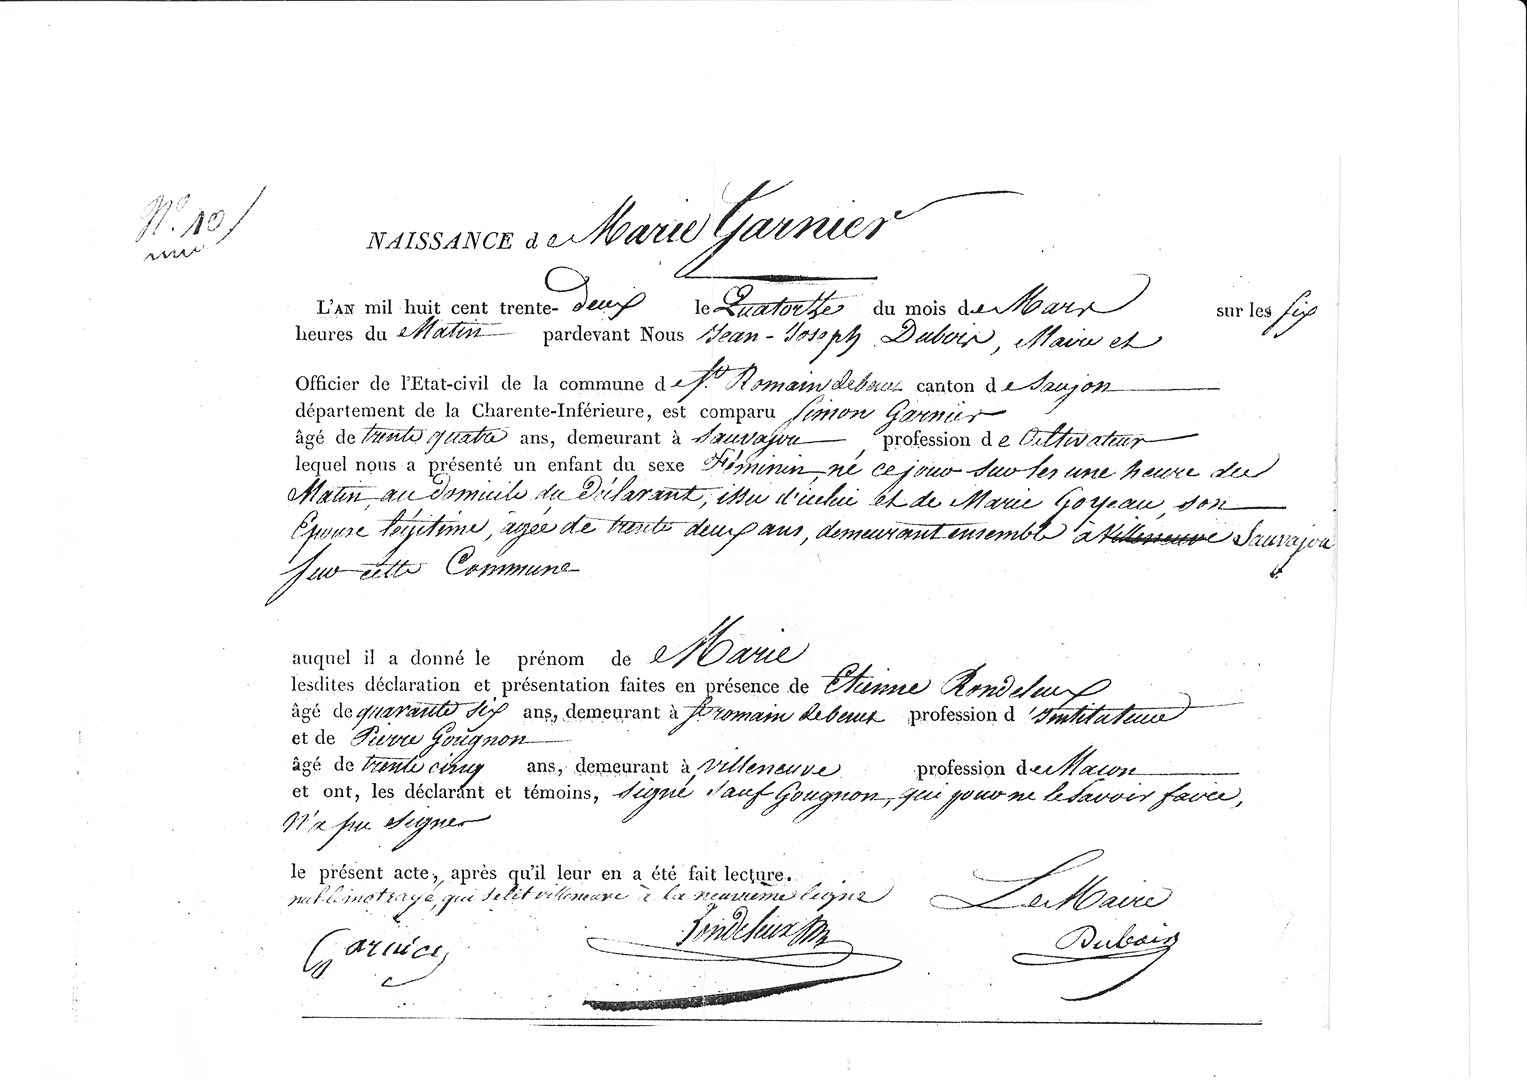 N.º 10
NAISSANCE de Marie Garnier
L'AN mil huit cent trente-deux le Quatorze du mois de Mars sur les six
heures du Matin pardevant Nous Jean-Joseph Dubois, Maire et
Officier de l'Etat-civil de la commune de St. Romain debenet canton de Saujon
département de la Charente-Inférieure, est comparu Simon Garnier
âgé de trente quatre ans, demeurant à Sauvajou, profession de Cultivateur
lequel nous a présenté un enfant du sexe Féminin, né ce jour sur les une heure du
Matin, au Domicile du Déclarant, issu d'icelui et de Marie Goyeau, son
Epouse légitime, âgée de trente deux ans, demeurant ensemble à villeneuve Sauvajou
sur cette Commune
auquel il a donné le prénom de Marie
lesdites déclaration et présentation faites en présence de Etienne Rondeleux
âgé de quarante six ans, demeurant à St romain debenet profession d'Instituteur
et de Pierre Gougnon
âgé de trente cinq ans, demeurant à villeneuve profession de Macon
et ont, les déclarant et témoins, signé sauf Gougnon, qui pour ne le savoir faire,
N'a pu signer
le présent acte, après qu'il leur en a été fait lecture.
nul le mot rayé, qui se lit villeneuve à la neuvième ligne
Le Maire
Garnier Rondeleux Dubois